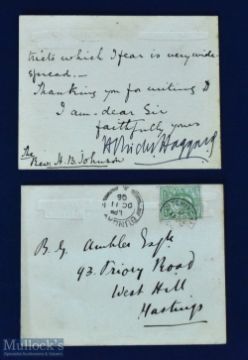 tricts which I fear is very wide-
spread.—
Thanking you for writing
I am - dear Sir
faithfully yours
H Rider Haggard
The
Rev. H. B. Johnson
DITCHINGHAM
1 PM
OC 11
06
B. G. Ambler Esqre
93. Priory Road
West Hill
Hastings
Mullock's